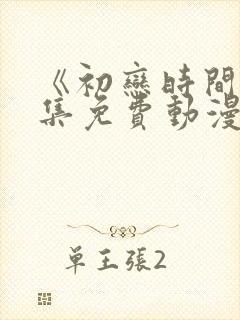 《初戀時間
集免費動漫
单王張2